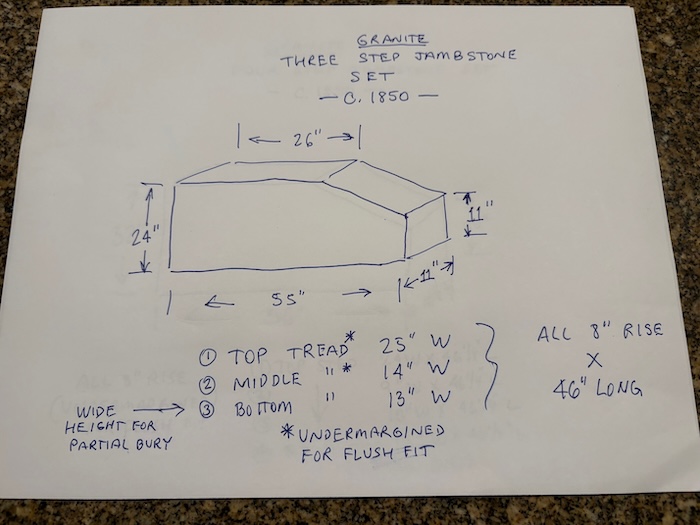 GRANITE
THREE STEP JAMBSTONE
SET
— C. 1850 —
26"
24"
11"
11"
55"
① TOP TREAD* 25" W
② MIDDLE "* 14" W
③ BOTTOM " 13" W
ALL 8" RISE
X
46" LONG
WIDE →
HEIGHT FOR
PARTIAL BURY
* UNDERMARGINED
FOR FLUSH FIT